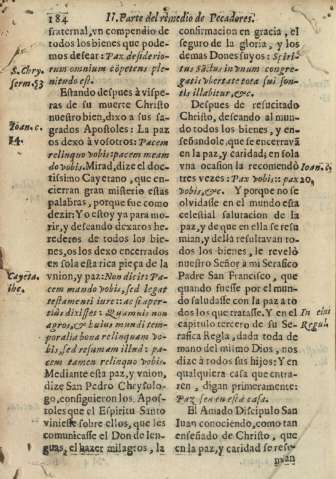 184 II. Parte del remedio de Pecadores.
fraternal, vn compendio de
todos los bienes que pode-
mos desear: Pax desiderio-
rum omnium cõpetens ple-
nitudo est.
S. Chry.
serm. 53
Estando despues à vispe-
ras de su muerte Christo
nuestro bien, dixo a sus sa-
grados Apostoles: La paz
os dexo à vosotros: Pacem
relinquo vobis: pacem meam
do vobis. Mirad, dize el doc-
tissimo Cayetano, que en-
cierran gran misterio estas
palabras, porque fue como
dezir: Yo estoy ya para mo-
rir, y deseando dexaros he-
rederos de todos los bie-
nes, os los dexo encerrados
en sola esta rica pieça de la
vnion, y paz: Non dicit: Pa-
cem mando vobis, sed legat
testamenti iure: ac si aper-
tiùs dixisset: Quamuis non
agros, & huius mundi tem-
poralia bona relinquam vo-
bis, sed resumam illud: pa-
cem tamen relinquo vobis.
Ioan. c.
14.
Cayeta.
ibc.
Mediante esta paz, y vnion,
dize San Pedro Chrysolo-
go, consiguieron los Apos-
toles que el Espiritu Santo
viniesse sobre ellos, que les
comunicasse el Don de len-
guas, el hazer milagros, la
confirmacion en gracia, el
seguro de la gloria, y los
demas Dones suyos: Spiri-
tus Sãctus in vnum congre-
gatis vbertate tota sui fon-
tis illabitur, &c.
Despues de resucitado
Christo, deseando al mun-
do todos los bienes, y en-
señandole, que se encerravã
en la paz, y caridad; en sola
vna ocasion la recomendò
tres vezes: Pax vobis:: pax
vobis, &c. Y porque no se
olvidasse en el mundo esta
celestial salutacion de la
paz, y de que en ella se resu
mian, y della resultavan to-
dos los bienes, le revelò
nuestro Señor a mi Serafico
Padre San Francisco, que
quando fuesse por el mun-
do saludasse con la paz a to
dos los que tratasse. Y en el
capitulo tercero de su Se-
rafica Regla, dada toda de
mano del mismo Dios, nos
dize à todos sus hijos: Y en
qualquiera casa que entra-
ren, digan primeramente:
Paz sea en esta casa.
Ioan. c.
20,
In eius
Regul.
El Amado Discipulo San
Iuan conociendo, como tan
enseñado de Christo, que
en la paz, y caridad se resu-
mian